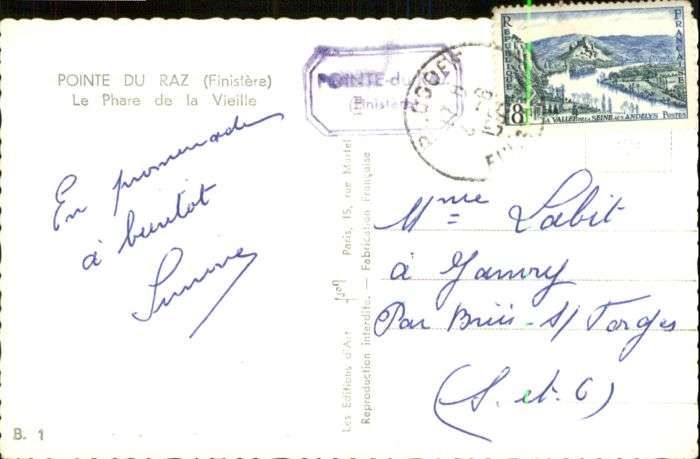 POINTE DU RAZ (Finistère)
Le Phare de la Vieille
En promenade
à bientôt
Simone
B. 1
POINTE-du-
(Finistère)
PLOGOFF
REPUBLIQUE
FRANCAISE
8
LA VALLEE DE LA SEINE AUX ANDELYS POSTES
Les Editions d'Art Yvon Paris, 15, rue Martel
Reproduction interdite. — Fabrication Française
Mme Labit
à
Par Briis-s/ Forges
(S. et O)